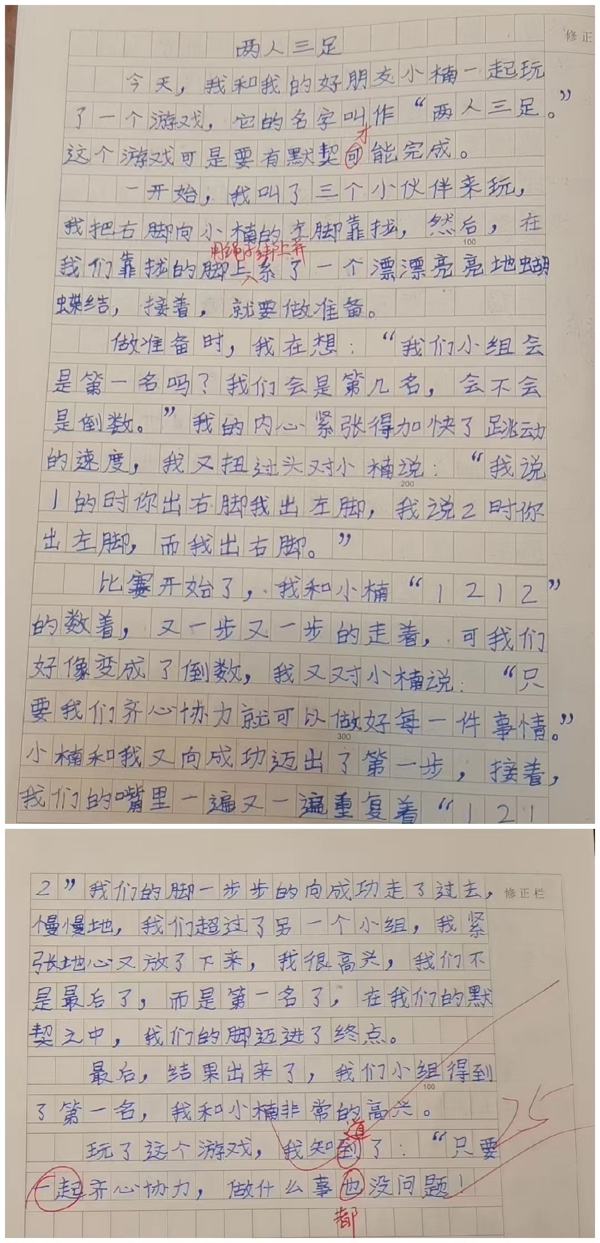 两人三足
修正
今天，我和我的好朋友小楠一起玩
了一个游戏，它的名字叫作“两人三足。”
才
这个游戏可是要有默契可能完成。
一开始，我叫了三个小伙伴来玩，
我把右脚向小楠的左脚靠拢，然后，在
100
用绳子绑上并
我们靠拢的脚上系了一个漂漂亮亮地蝴
蝶结，接着，就要做准备。
做准备时，我在想：“我们小组会
是第一名吗？我们会是第几名，会不会
是倒数。”我的内心紧张得加快了跳动
的速度，我又扭过头对小楠说：“我说
200
1的时你出右脚我出左脚，我说2时你
出左脚，而我出右脚。”
比赛开始了，我和小楠“1212”
的数着，又一步又一步的走着，可我们
好像变成了倒数，我又对小楠说：“只
要我们齐心协力就可以做好每一件事情。”
300
小楠和我又向成功迈出了第一步，接着，
我们的嘴里一遍又一遍重复着“121
2”我们的脚一步步的向成功走了过去，
修正栏
慢慢地，我们超过了另一个小组，我紧
张地心又放了下来，我很高兴，我们不
是最后了，而是第一名了，在我们的默
契之中，我们的脚迈进了终点。
最后，结果出来了，我们小组得到
100
了第一名，我和小楠非常的高兴。
25
道
玩了这个游戏，我知到了：“只要
一起齐心协力，做什么事也没问题！
都